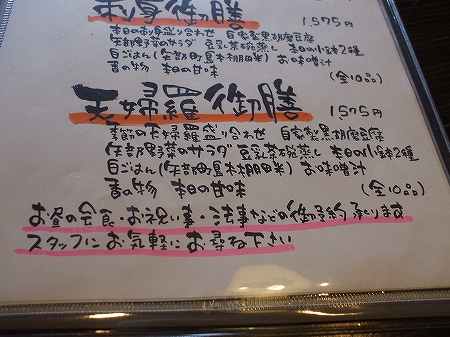 刺身御膳 1575円
本日のお刺身盛り合わせ 自家製黒胡麻豆腐
矢部野菜のサラダ 豆乳茶碗蒸し 本日の小鉢2種
白ごはん(矢部町島木棚田米) お味噌汁
香の物 本日の甘味 (全10品)
天婦羅御膳 1575円
季節の天婦羅盛り合わせ 自家製黒胡麻豆腐
矢部野菜のサラダ 豆乳茶碗蒸し 本日の小鉢2種
白ごはん(矢部町島木棚田米) お味噌汁
香の物 本日の甘味 (全10品)
お昼の会食・お祝い事・法事などの御予約承ります
スタッフにお気軽にお尋ね下さい